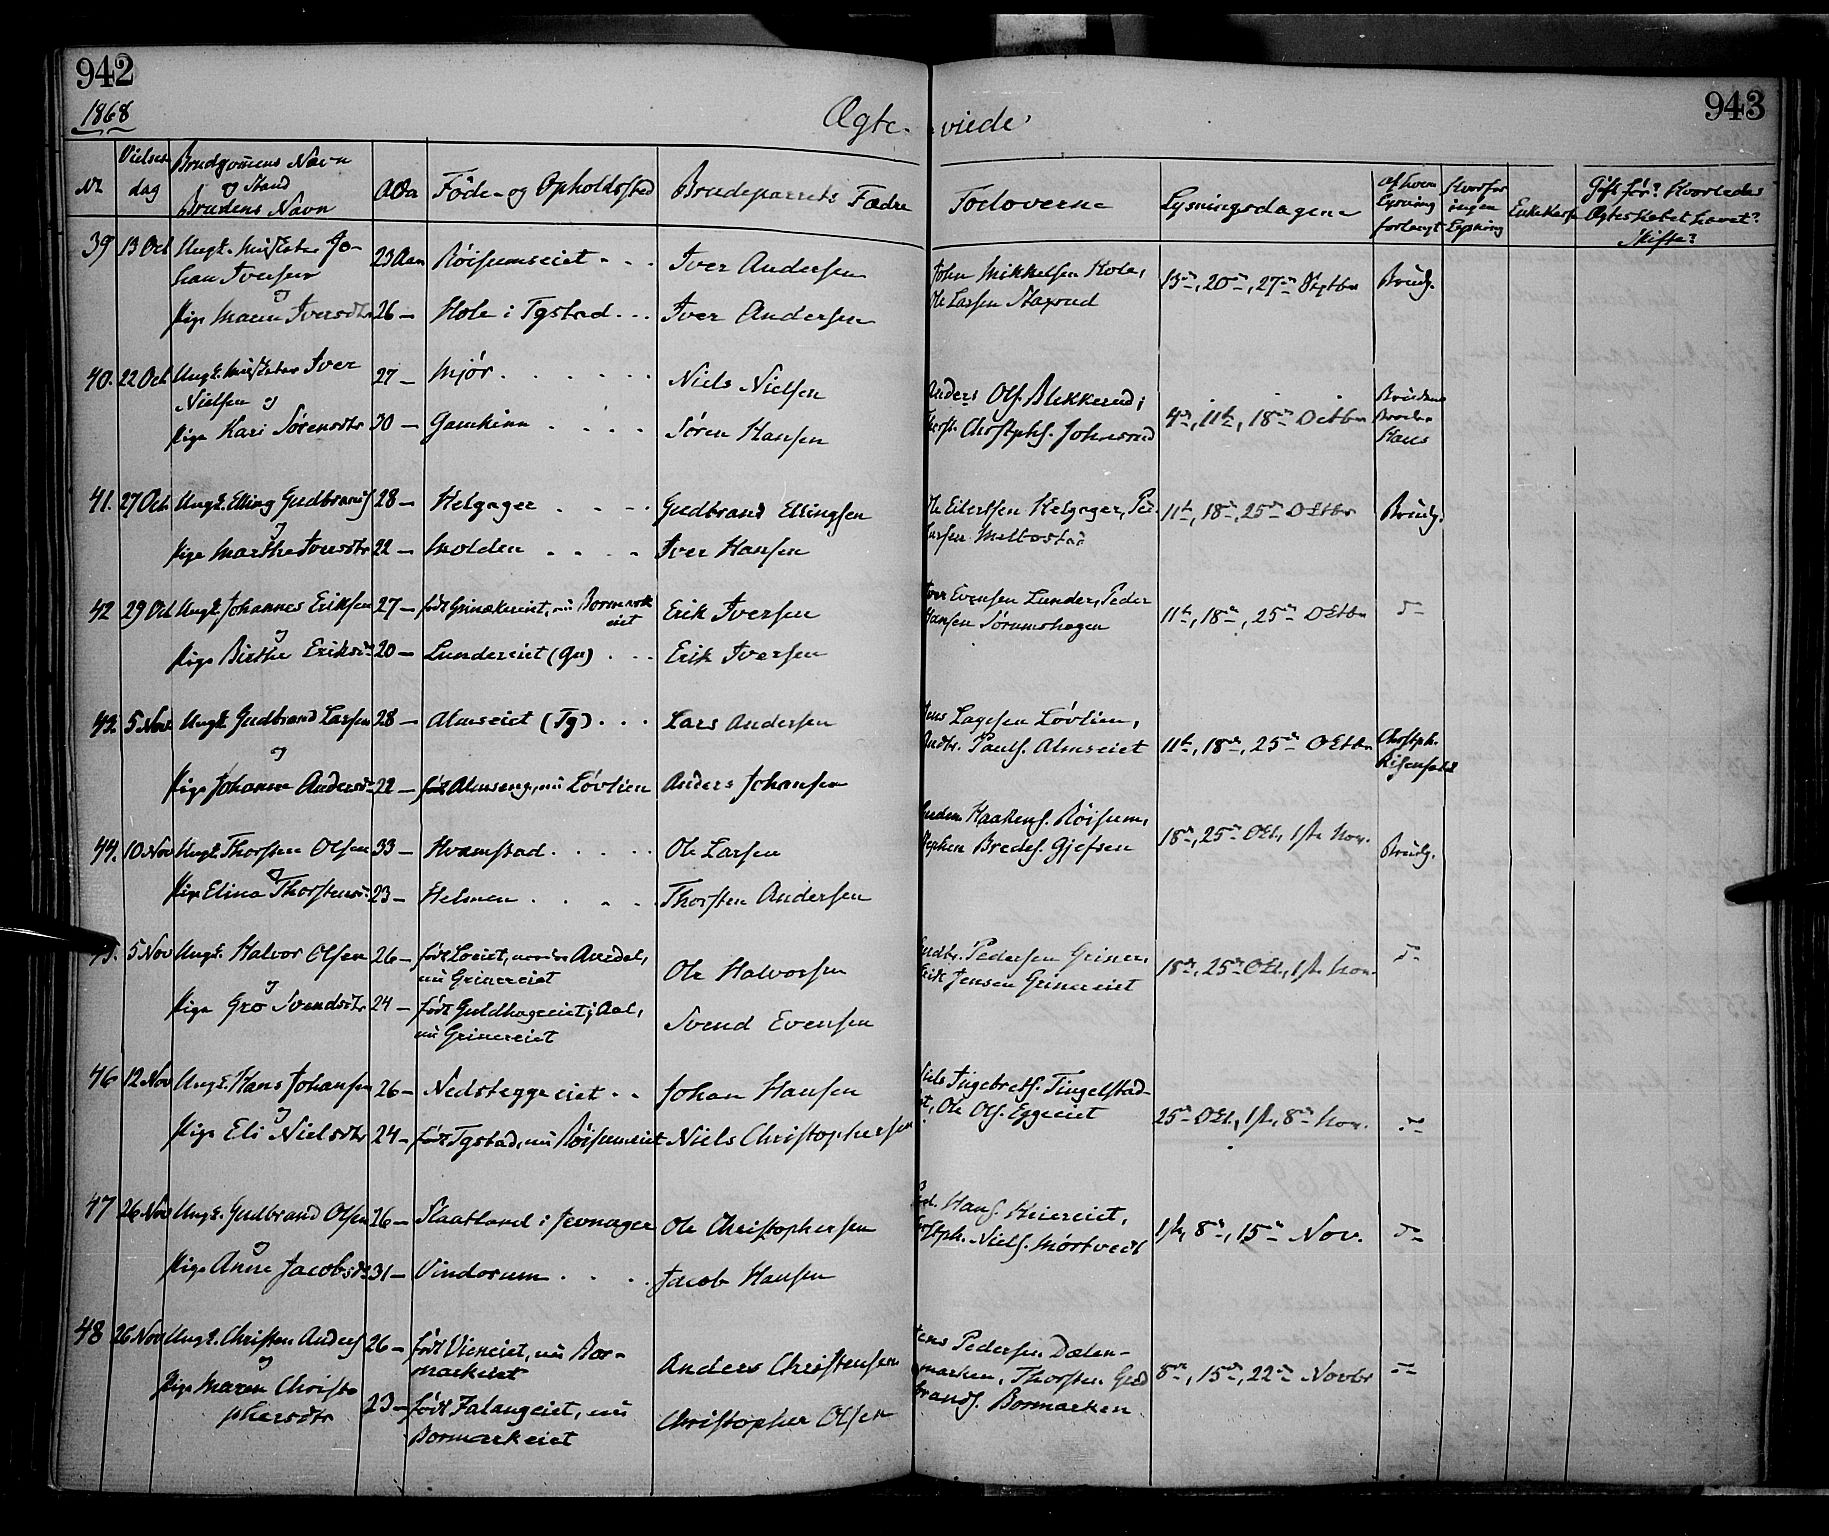 942
943
1868
Ægte- viede
Nr
Vielses dag
Brudgomens Navn og Stand
Brudens Navn
Alder
Føde- og Opholdssted
Brudeparrets Fædre
Forloverne
Lysningsdagene
Af hvem Lysning forlangt
Hvorfor ingen Lysning
Enkekasse
Gift før? Hvorledes Ægteskabet hævet? Skifte?
39 13 Oct Ungk. Johan Iversen 23 Aar Röisumseiet Iver Andersen John Mikkelsen Hole, Ole Larsen 13de, 20de, 27de Septbr Brudg.
og
Pige Maren Iversdtr 26 - Hole i Tgstad Iver Andersen
40. 22 Oct Ungk. Iver Nielsen 27 - Mjör Niels Nielsen Anders Ols. Blekkerud, Chrstphs. 4de, 11te, 18de Octbr Brudens Broder Hans
og
Pige Kari Sörensdtr 30 - Gamkinn Sören Hansen
41. 27 Oct Ungk. Elling Gudbrands 28 - Helgager Gudbrand Ellingsen Eilertsen Helgager, 11te, 18de, 25de Octbr Brudg.
og
Pige Marthe Iversdtr 22 - Molden Iver Hansen
42 29 Oct Ungk. Johannes Eriksen 27 - födt Grinakereiet, nu Bormarkeiet Erik Iversen Iver Evensen Lunder, Peder Hansen Sörumshagen 11te, 18de, 25de Octbr do
og
Pige Birthe Eriksdtr 20 - Lundereiet (Gn) Erik Iversen
43. 5 Nov Ungk. Gudbrand Larsen 28 - Almseiet (Tg) Lars Andersen Lagesen Lövlien, Gudbr. Pauls. Almseiet 11te, 18de, 25de Octbr Chrstph.
og
Pige Johanne Andersdtr 22 - födt Almseng, nu Lövlien Anders Johansen
44. 10 Nov Ungk. Thorsten Olsen 33 - Hvamstad Ole Larsen Haakens. Röisum, Stephen Bredes. Gjefsen 18de, 25de Oct, 1ste Nov. Brudg.
og
Pige Elina Thorstensdtr 23 - Helmen Thorsten Andersen
45. 5 Nov Ungk. Halvor Olsen 26 - födt Loeiet, nordre Aurdal, nu Grinereiet Ole Halvorsen Gudbr. Pedersen Griner, Erik Jensen Grinereiet 18de, 25de Oct, 1ste Nov. do
og
Pige Gro Svendsdtr 24 - födt Guldhageeiet i Aal, nu Grinereiet Svend Evensen
46 12 Nov Ungk. Hans Johansen 26 - Nedreeggeeiet Johan Hansen Niels Ingebrets. Tingelstadeiet, Ole Ols. Eggeeiet 25de Oct, 1ste, 8de Nov. do
og
Pige Eli Nielsdtr 24 - födt Tgstad, nu Röisumeiet Niels Christophersen
47 26 Nov Ungk. Gudbrand Olsen 26 - Slaatland i Jevnager Ole Christophersen Hans. Niels. Mörtvedt 1ste, 8de, 15de Nov. do
og
Pige Anne Jacobsdtr 31 - Vindorum Jacob Hansen
48 26 Nov Ungk. Christen Anders 26 - födt Vieneiet, nu Bormarkeiet Anders Christensen Jens Pedersen Dælenmarken, Thorsten Gudbrands. Bormarken 8de, 15de, 22de Novbr do
og
Pige Maren Christophersdtr 23 - födt Falangeiet, nu Bormarkeiet Christopher Olsen